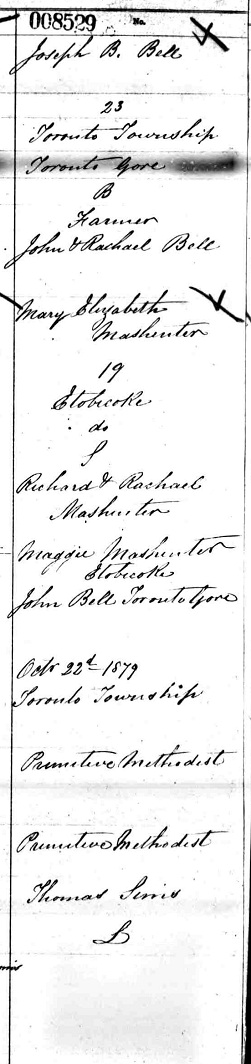 008529 No.
Joseph B. Bell
23
Toronto Township
Toronto Gore
B
Farmer
John & Rachael Bell
Mary Elizabeth
Mashinter
19
Etobicoke
do
S
Richard & Rachael
Mashinter
Maggie Mashinter
Etobicoke
John Bell Toronto Gore
Octr 22d 1879
Toronto Township
Primitive Methodist
Primitive Methodist
Thomas
L